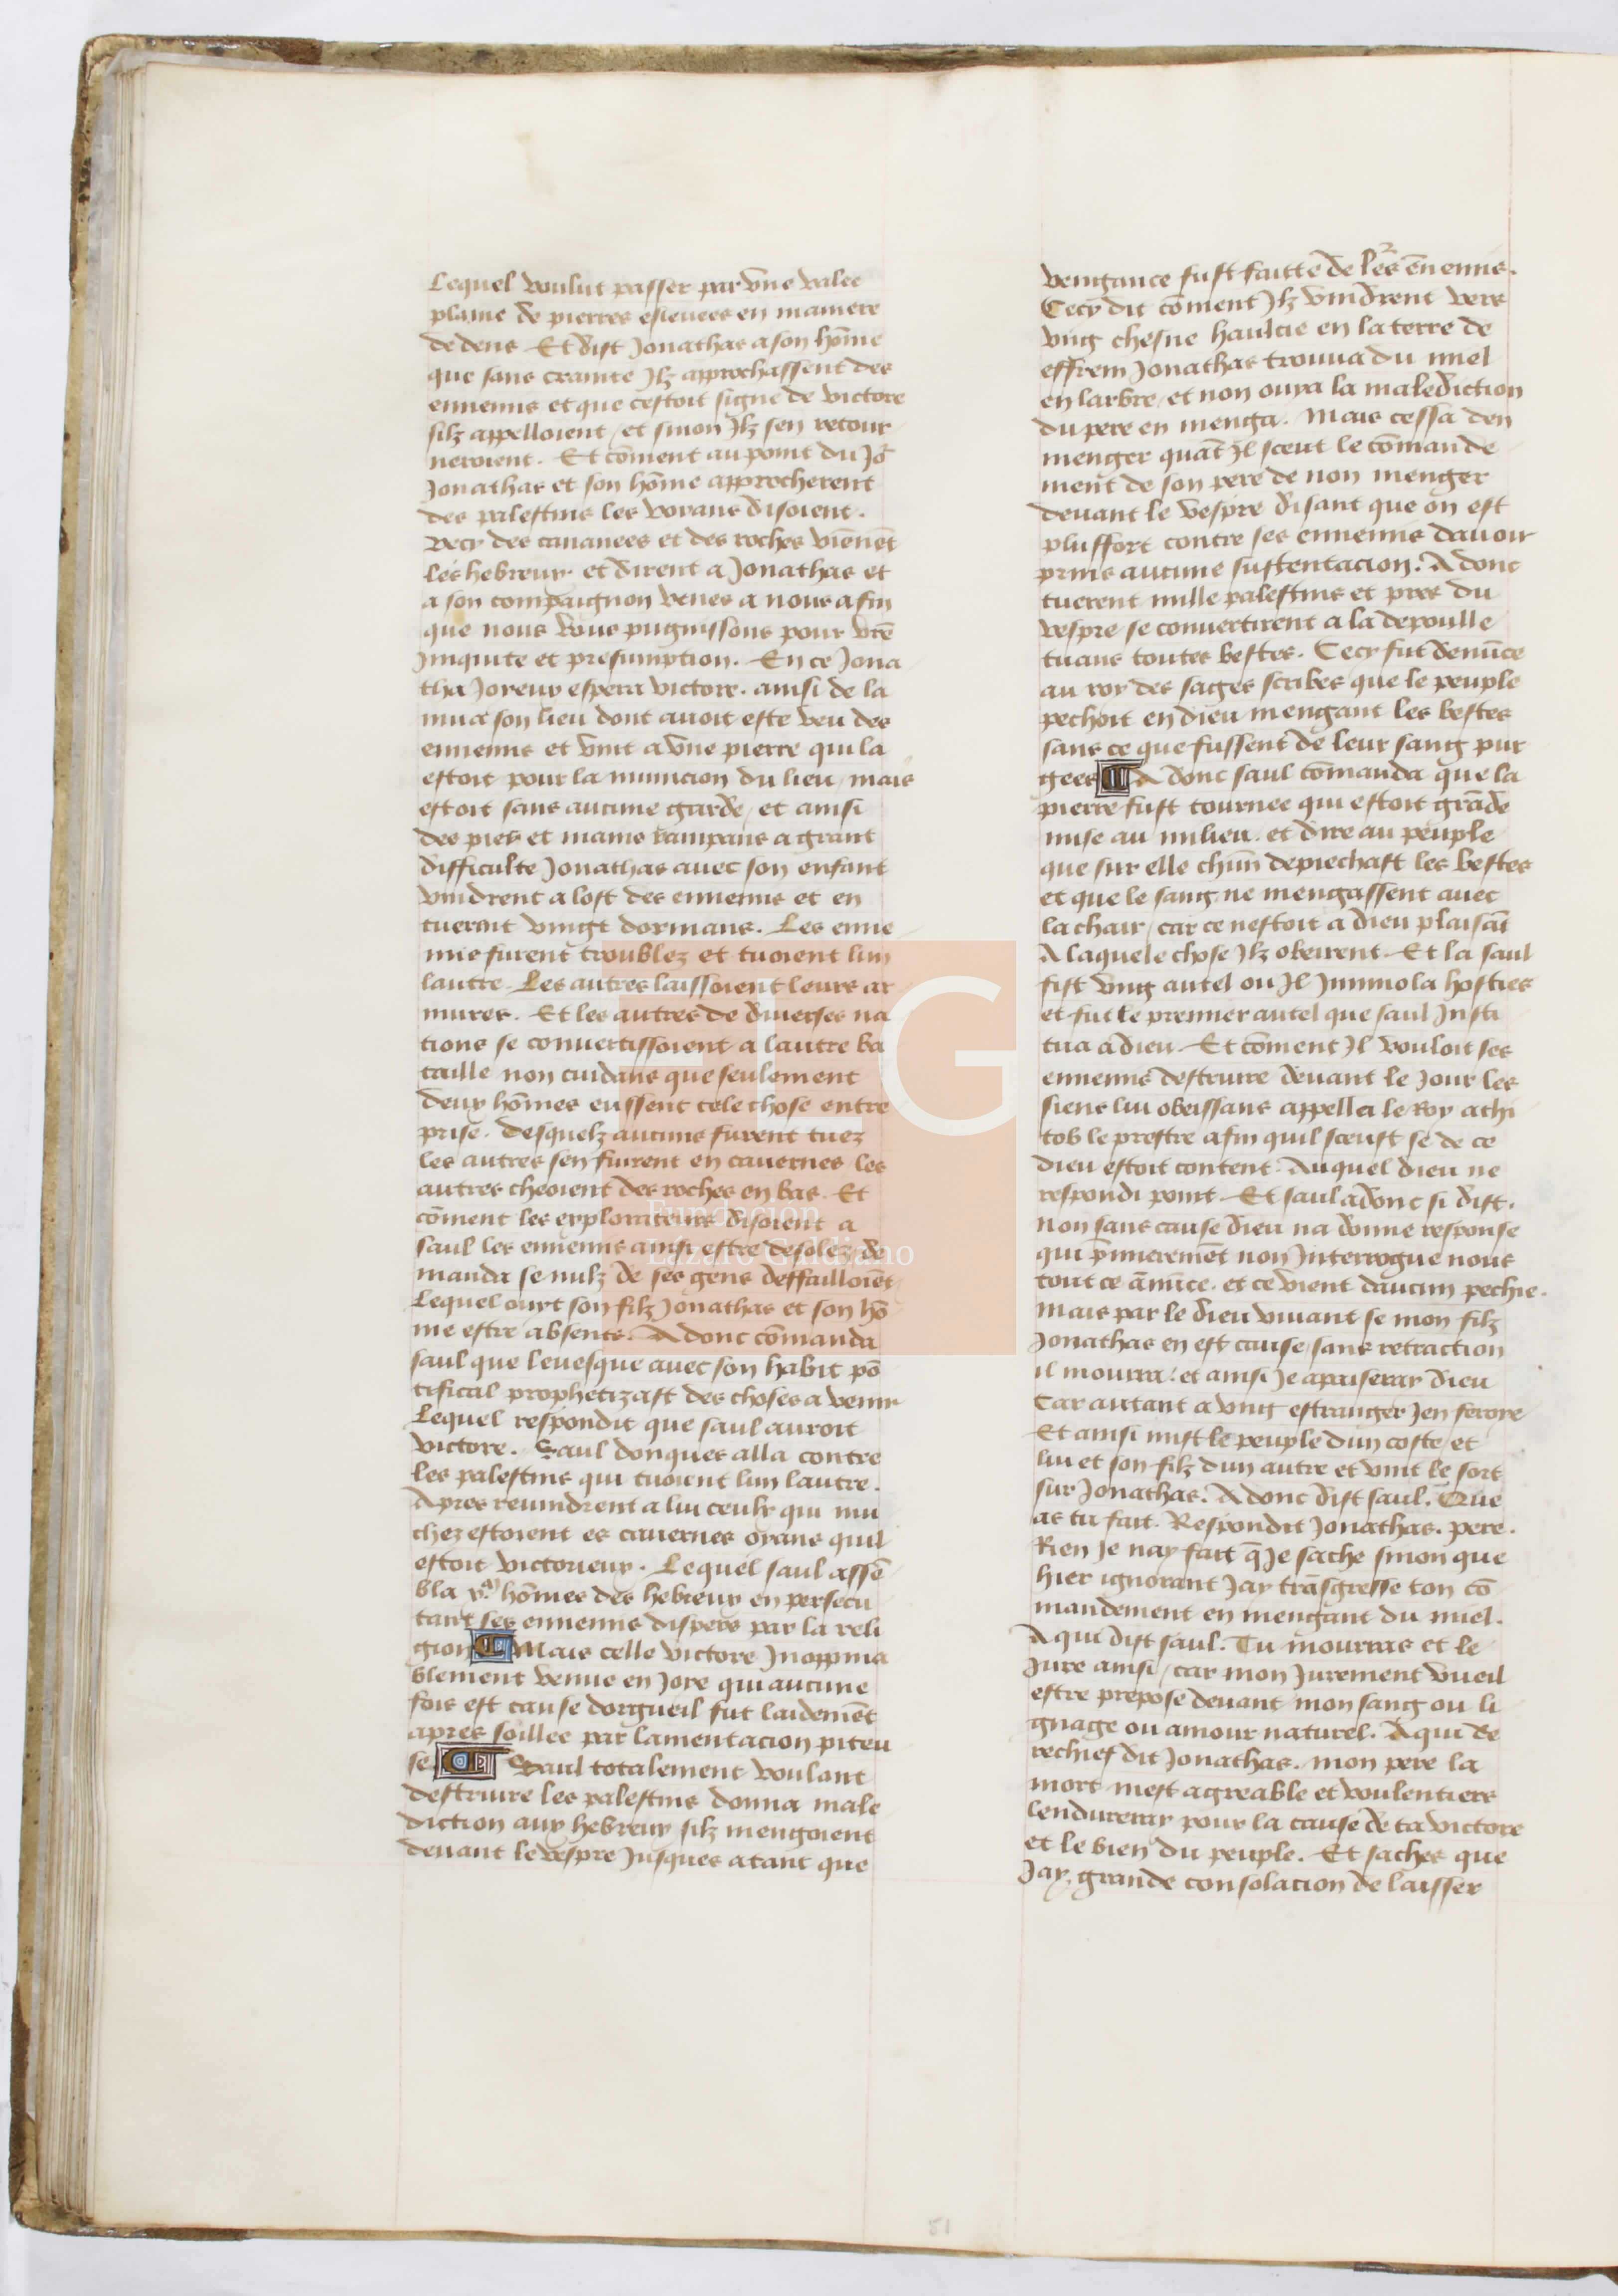 Lequel voulut passer par vne valee
plaine de pierres esleuees en maniere
de dens Et dist Jonathas a son hōme
que sans crainte Jlz approchassent des
ennemis et que cestoit signe de victore
silz appelloient / et sinon Jlz sen retour
neroient. Et cōment au point du Jo͛
Jonathas et son hōme approcherent
des palestins les voians disoient.
vecy des cauanees et des roches viēnēt
les hebreux et dirent a Jonathas et
a son compaignon venes a nous afin
que nous vous pugnissons pour vr̄e
Jniquite et presumption. En ce Jona
tha Joreux espera victore. ainsi de la
mua son lieu dont auoit este veu des
ennemis et vint a vne pierre qui la
estoit pour la municion du lieu / mais
estoit sans aucune garde / et ainsi
des pies et mains rampans a grant
difficulte Jonathas auec son enfant
vindrent a lost des ennemis et en
tuerent vingt dormans. Les enne
mis furent troublez et tuoient lun
lautre. Les autres laissoient leurs ar
mures. Et les autres de diuerses na
tions se conuertissoient a lautre ba
taille non cuidans que seulement
deux hōmes eussent tele chose entre
prise. desquelz aucuns furent tuez
les autres sen fuirent en cauernes les
autres cheoient des roches en bas. Et
cōment les explorateurs disoient a
saul les ennemis ainsi estre desolez de
manda se nulz de ses gens deffailloiēt
Lequel ouyt son filz Jonathas et son hō
me estre absents. A donc cōmanda
saul que leuesque auec son habit pō
tifical prophetizast des choses a venir
Lequel respondit que saul auroit
victore. Saul donques alla contre
les palestins qui tuoient lun lautre.
Apres reuindrent a lui ceulx qui mu
chez estoient es cauernes oyans quil
estoit victorieux. Lequel saul assē
bla x.ᵐ hōmes des hebreux en persecu
tant ses ennemis dispers par la reli
gion Mais celle victore Jnoppina
blement venue en Joye qui aucune
fois est cause dorgueil fut laidemēt
apres soillee par lamentacion piteu
se Saul totalement voulant
destruire les palestins donna male
diction aux hebreux silz mengoient
deuant le vespre Jusques a tant que
vengance fust faitte de le͛s ēnemis.
Cecy dit cōment Jlz vindrent vers
vng chesne haultie en la terre de
effrem Jonathas trouua du miel
en larbre / et non ouya la malediction
du pere en menga. Mais cessa den
menger quāt Jl sceut le cōmande
ment de son pere de non menger
deuant le vespre disant que on est
plus ffort contre ses ennemis dauoir
prins aucune sustentacion. A donc
tuerent mille palestins et pres du
vespre se conuertirent a la depoulle
tuans toutes bestes. Cecy fut denūce
au roy des sages scribes que le peuple
pechoit en dieu mengant les bestes
sans ce que fussent de leur sang pur
gees A donc saul cōmanda que la
pierre fust tournee qui estoit grāde
mise au milieu. et dire au peuple
que sur elle chūn depiechast les bestes
et que le sang ne mengassent auec
la chair / car ce nestoit a dieu plaisāt
A laquele chose Jlz obeirent. Et la saul
fist vng autel ou Jl Jmmola hosties
et fut le premier autel que saul Jnsti
tua a dieu. Et cōment Jl vouloit ses
ennemis destruire deuant le Jour les
siens lui obeissans appella le Roy achi
tob le prestre afin quil sceust se de ce
dieu estoit content. Auquel dieu ne
respondi point. Et saul adonc si dist.
non sans cause dieu na donne response
qui p̄mierēmēt non Jnterrogue nous
tout ce ānūce. et ce vient daucun pechie.
mais par le dieu viuant se mon filz
Jonathas en est cause / sans retraction
il mourra. et ainsi Je apaiseray dieu
Car autant a vng estranger Jen feroye
Et ainsi mist le peuple dun coste / et
lui et son filz dun autre et vint le sort
sur Jonathas. A donc dist saul. Que
as tu fait. Respondit Jonathas. pere.
Rien Je nay fait q̄ Je sache sinon que
hier ignorant Jay trāsgresse ton cō
mandement en mengant du miel.
A qui dist saul. Tu mourras et le
Jure ainsi / car mon Jurement vueil
estre prepose deuant mon sang ou li
gnage ou amour naturel. A qui de
rechief dit Jonathas. mon pere la
mort mest agreable et voulentiers
lendureray pour la cause de ta victore
et le bien du peuple. Et saches que
Jay grande consolacion de laisser
FLG
Fundación
Lázaro Galdiano
51